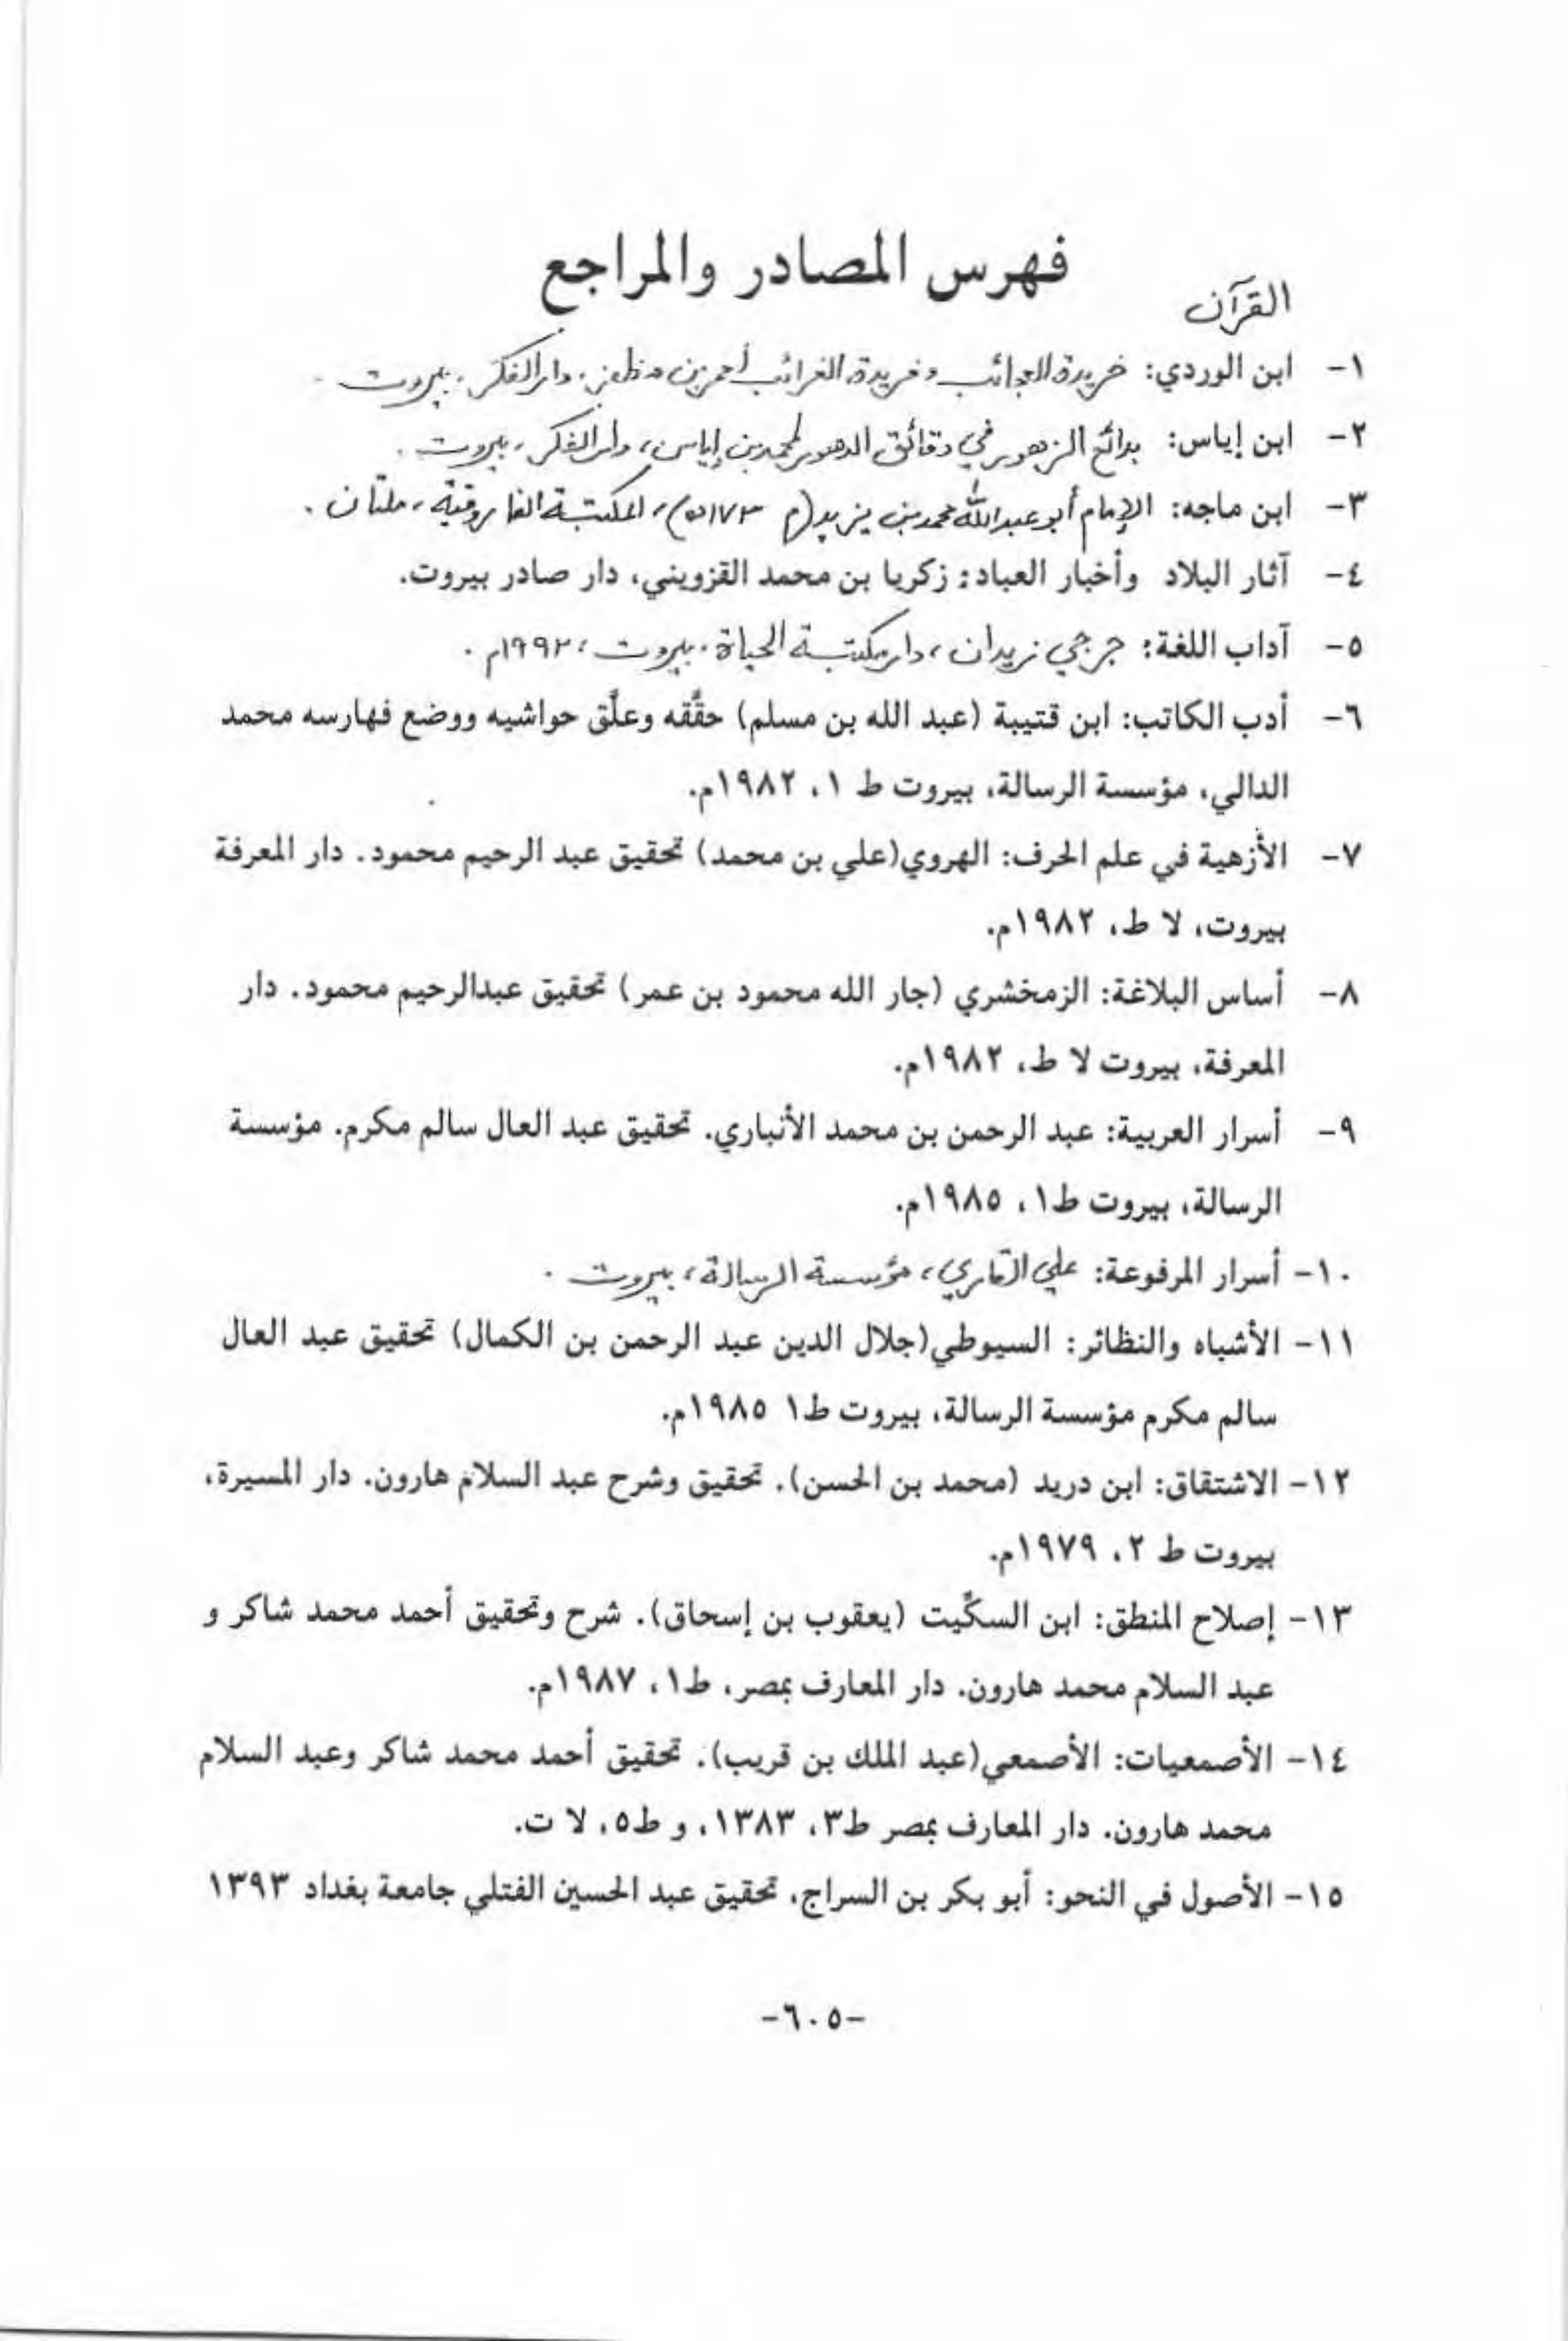 فهرس المصادر والمراجع
القرآن
١- ابن الوردي: خريدة العجائب وفريدة الغرائب أحمد بن مظفر. دار الفكر. بيروت.
٢- ابن إياس: بدائع الزهور في دقائق الدهور لمحمد بن إياس، دار الفكر، بيروت.
٣- ابن ماجه: الإمام أبو عبد الله محمد بن يزيد (م ٢٧٣ه)، المكتبة الفاروقية، ملتان.
٤- آثار البلاد وأخبار العباد: زكريا بن محمد القزويني، دار صادر بيروت.
٥- آداب اللغة: جرجي زيدان، دار مكتبة الحياة. بيروت، ١٩٩٢م.
٦- أدب الكاتب: ابن قتيبة (عبد الله بن مسلم) حقَّقه وعلَّق حواشيه ووضع فهارسه محمد
الدالي، مؤسسة الرسالة، بيروت ط ١، ١٩٨٢م.
٧- الأزهية في علم الحرف: الهروي(علي بن محمد) تحقيق عبد الرحيم محمود. دار المعرفة
بيروت، لا ط، ١٩٨٢م.
٨- أساس البلاغة: الزمخشري (جار الله محمود بن عمر) تحقيق عبدالرحيم محمود. دار
المعرفة، بيروت لا ط، ١٩٨٢م.
٩- أسرار العربية: عبد الرحمن بن محمد الأنباري. تحقيق عبد العال سالم مكرم. مؤسسة
الرسالة، بيروت ط١، ١٩٨٥م.
١٠- أسرار المرفوعة: علي القاري، مؤسسة الرسالة، بيروت.
١١- الأشباه والنظائر: السيوطي(جلال الدين عبد الرحمن بن الكمال) تحقيق عبد العال
سالم مكرم مؤسسة الرسالة، بيروت ط١ ١٩٨٥م.
١٢- الاشتقاق: ابن دريد (محمد بن الحسن). تحقيق وشرح عبد السلام هارون. دار المسيرة،
بيروت ط ٢، ١٩٧٩م.
١٣- إصلاح المنطق: ابن السكِّيت (يعقوب بن إسحاق). شرح وتحقيق أحمد محمد شاكر و
عبد السلام محمد هارون. دار المعارف بمصر، ط١، ١٩٨٧م.
١٤- الأصمعيات: الأصمعي(عبد الملك بن قريب). تحقيق أحمد محمد شاكر وعبد السلام
محمد هارون. دار المعارف بمصر ط٣، ١٣٨٣، و ط٥، لا ت.
١٥- الأصول في النحو: أبو بكر بن السراج، تحقيق عبد الحسين الفتلي جامعة بغداد ١٣٩٣
-٦٠٥-